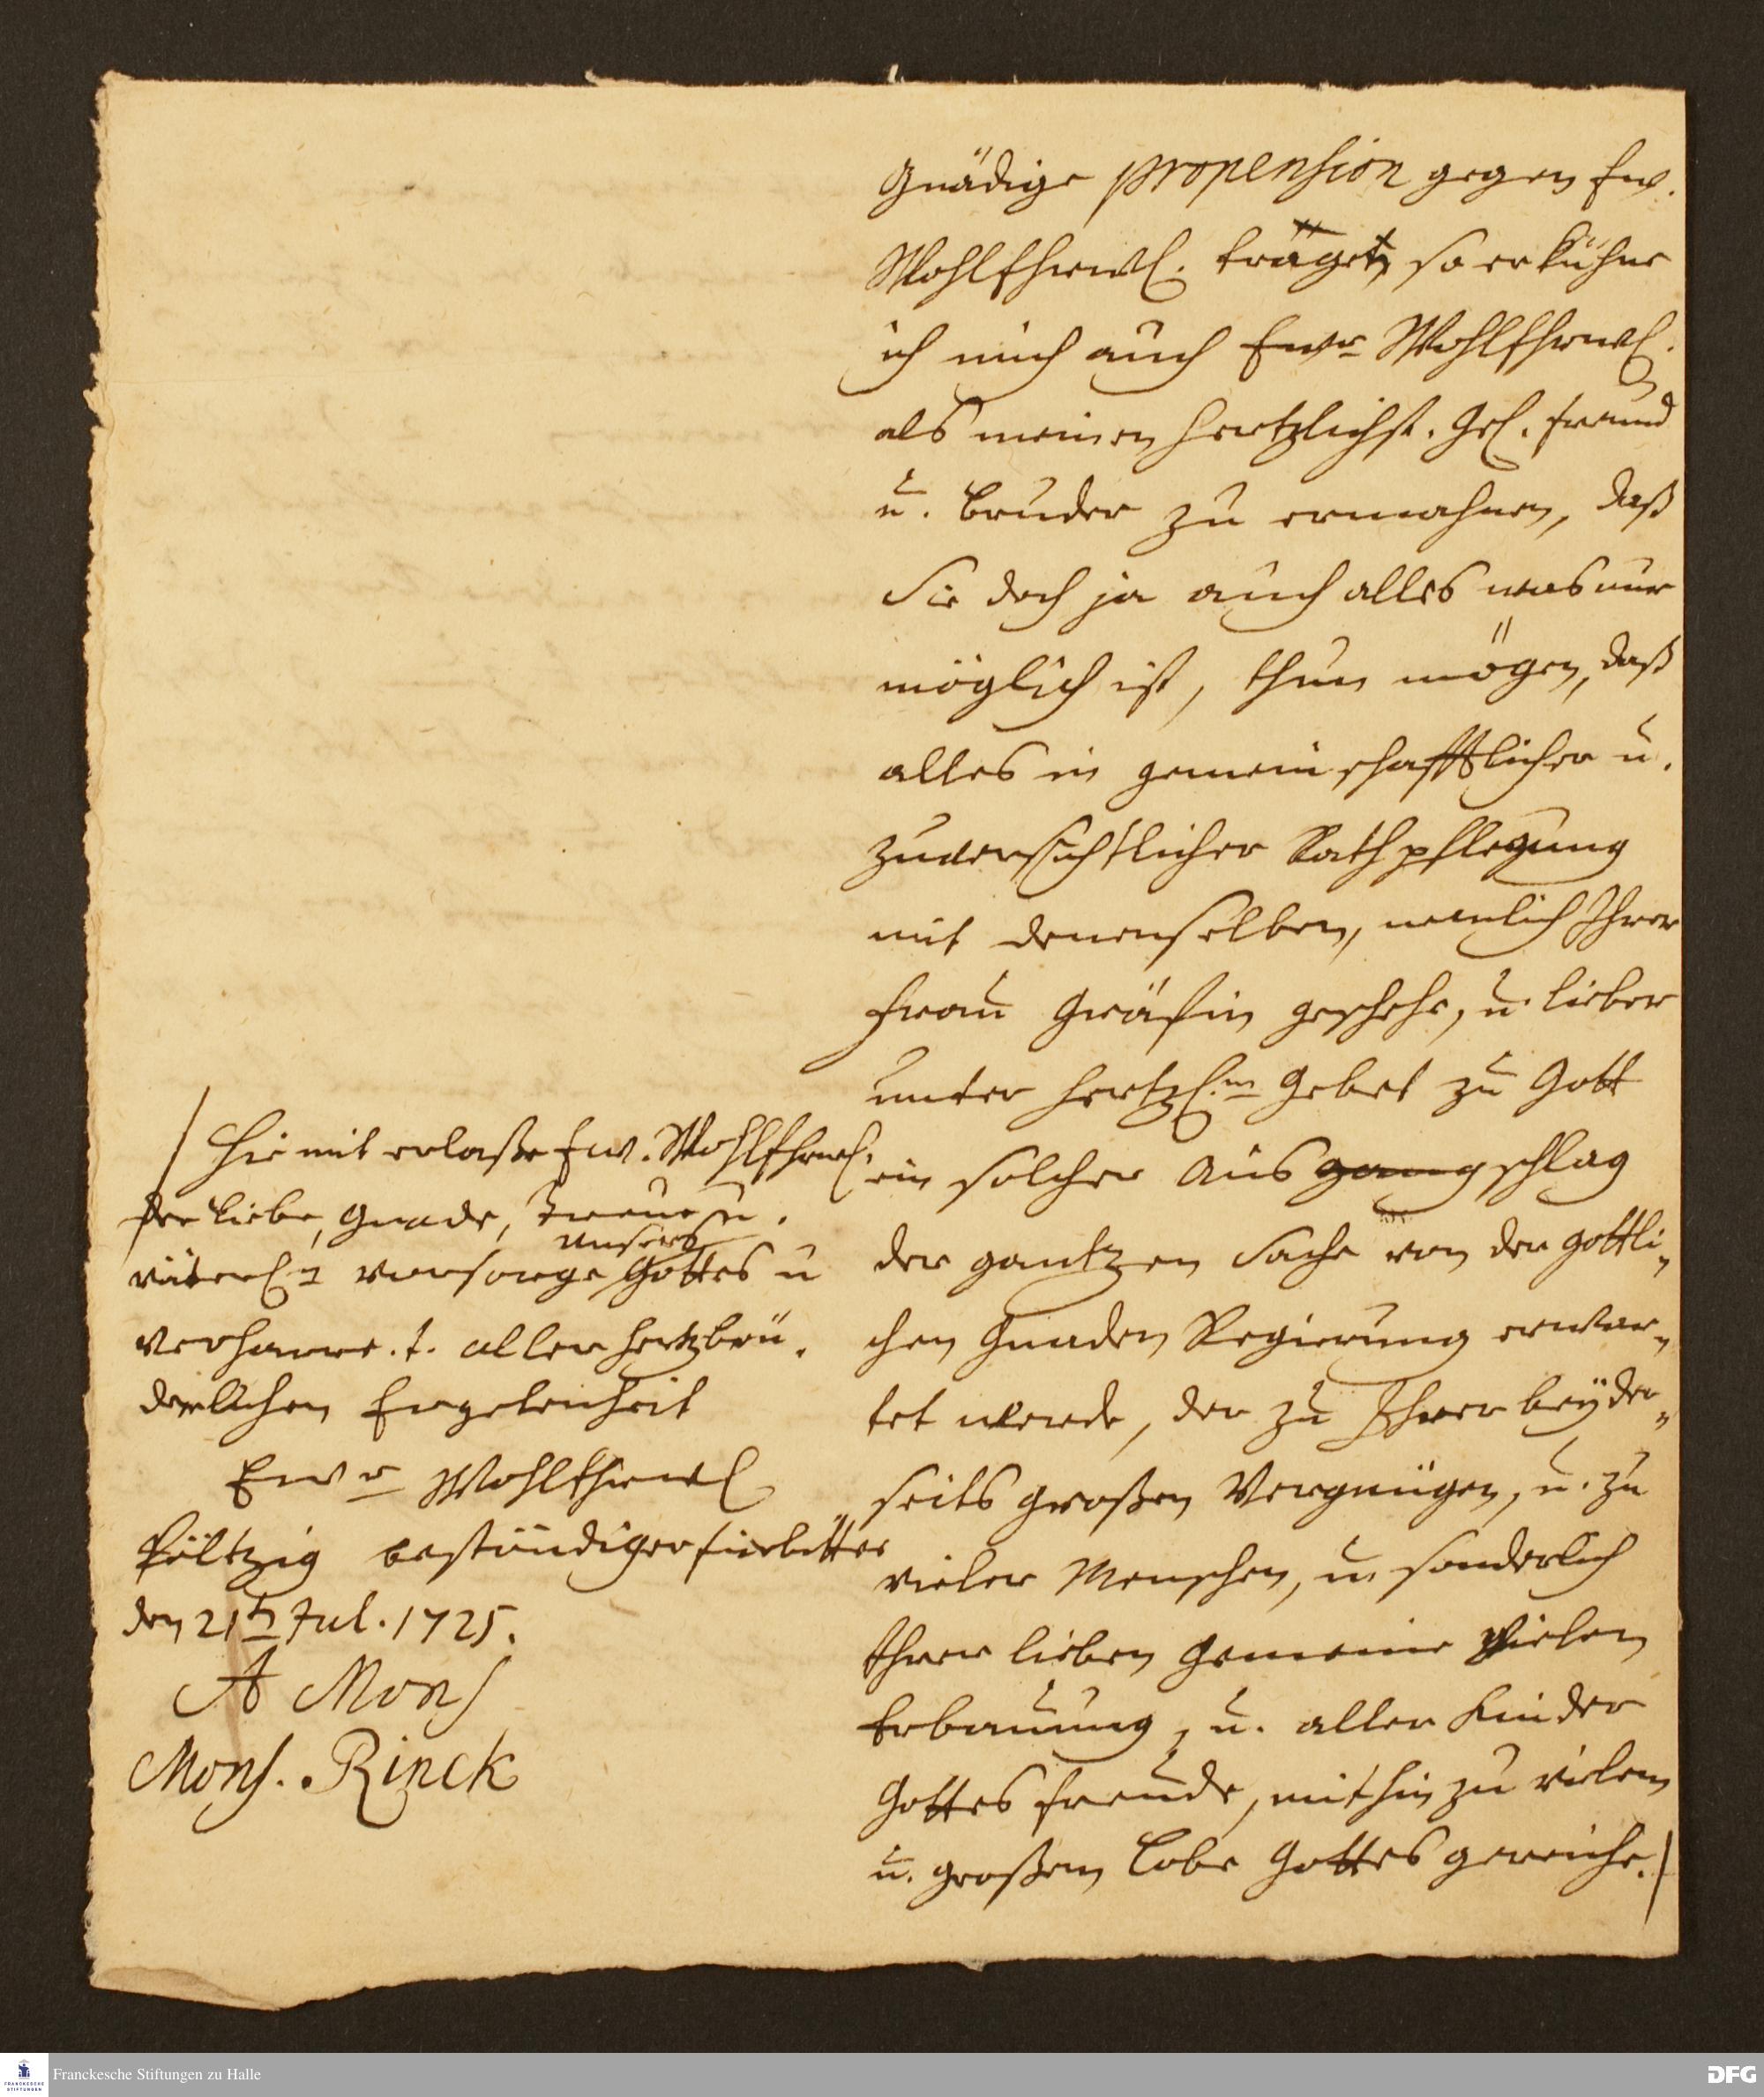 Gnädige propension gegen Ew.
WohlEhrwl. träget, so erkühne
ich mich auch Ewr WohlEhrwl.
als meinen hertzlichst. Gel. Freund
u. Bruder zu ermahnen, daß
Sie doch ja auch alles was nur
möglich ist, thun mögen, daß
alles in gemeinschafftlicher u.
zuversichtlicher Rathpflegung
mit denenselben, nemlich Ihrer
Frau Gräfin geschehe, u. lieber
unter hertzl.m Gebet zu Gott
ein solcher Ausgangschlag
der gantzen Sache von der gottli-
chen Gnaden Regierung erwar-
tet werde, der zu Ihrer beyder-
seits großen Vergnügen, u. zu
vieler Menschen, u. sonderlich
Ihrer lieben Gemeine vielen
Erbauung, u. aller Kinder
Gottes Freude, mithin zu vielem
u. großem Lobe Gottes gereiche.
Hiemit erlaße Ew. WohlEhrwl.
der Liebe, Gnade, Treue u.
unsers
väterl.n Vorsorge Gottes u
verharre. t. aller hertzbrü.
derlichen Ergebenheit
Ewr WohlEhrwl
Pöltzig beständiger fürbitter
den 21ten Jul. 1725.
A Mons
Mons. Rinck
Franckesche Stiftungen zu Halle
DFG
FRANCKESCHE
STIFTUNGEN